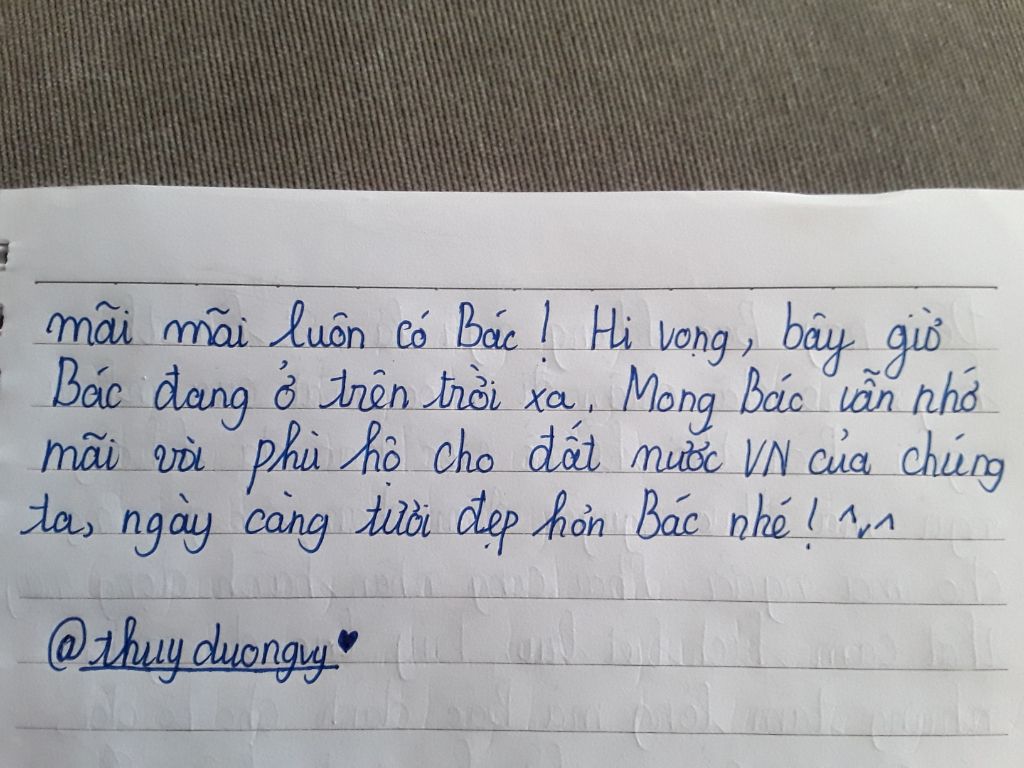 mãi mãi luôn có Bác! Hi vọng, bây giờ
Bác đang ở trên trời xa. Mong Bác vẫn nhớ
mãi và phù hộ cho đất nước VN của chúng
ta, ngày càng tươi đẹp hơn Bác nhé! ^v^
@thuyduongvy♥